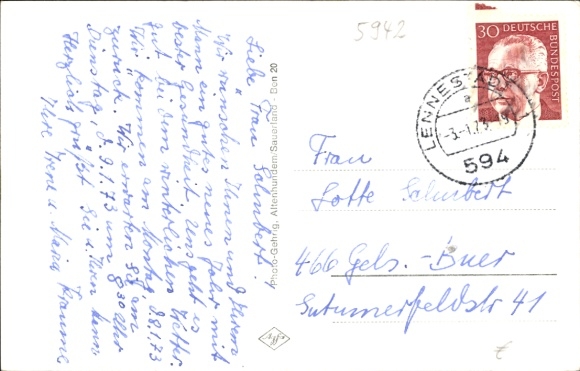 Liebe Frau Schubert!
Wir wünschen Ihnen und Ihrem
Mann ein gutes neues Jahr mit
bester Gesundheit. Uns geht es
gut bei dem winterlichen Wetter.
Wir kommen am Montag, d. 8.1.73
zurück. Wir erwarten Sie am
Dienstag, d. 9.1.73 um 8.30 Uhr.
Herzlich grüßt Sie u. Ihren Mann
Ihre Irene u. Maria
Photo-Gehrig, Altenhundem/Sauerland - Ben 20
effge
5942
30 DEUTSCHE
BUNDESPOST
LENNESTADT
a
-3.-1.73
594
Frau
Lotte Schubert
466 Gels.-Buer
Sutumerfeldstr 41